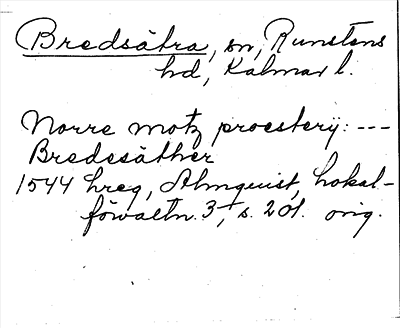 Bredsätra, sn, Runstens
hd, Kalmar l.
Norre motz proesterij: ---
Bredesäther
1544 hreg, Almquist, Lokal-
förvaltn. 3, s. 201. orig.